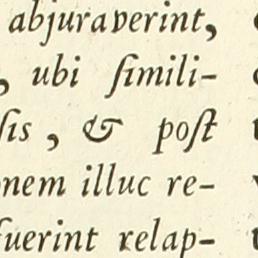 abjuraverint,
, ubi ſimili-
ſis, & poſt
nem illuc re-
fuerint relap-